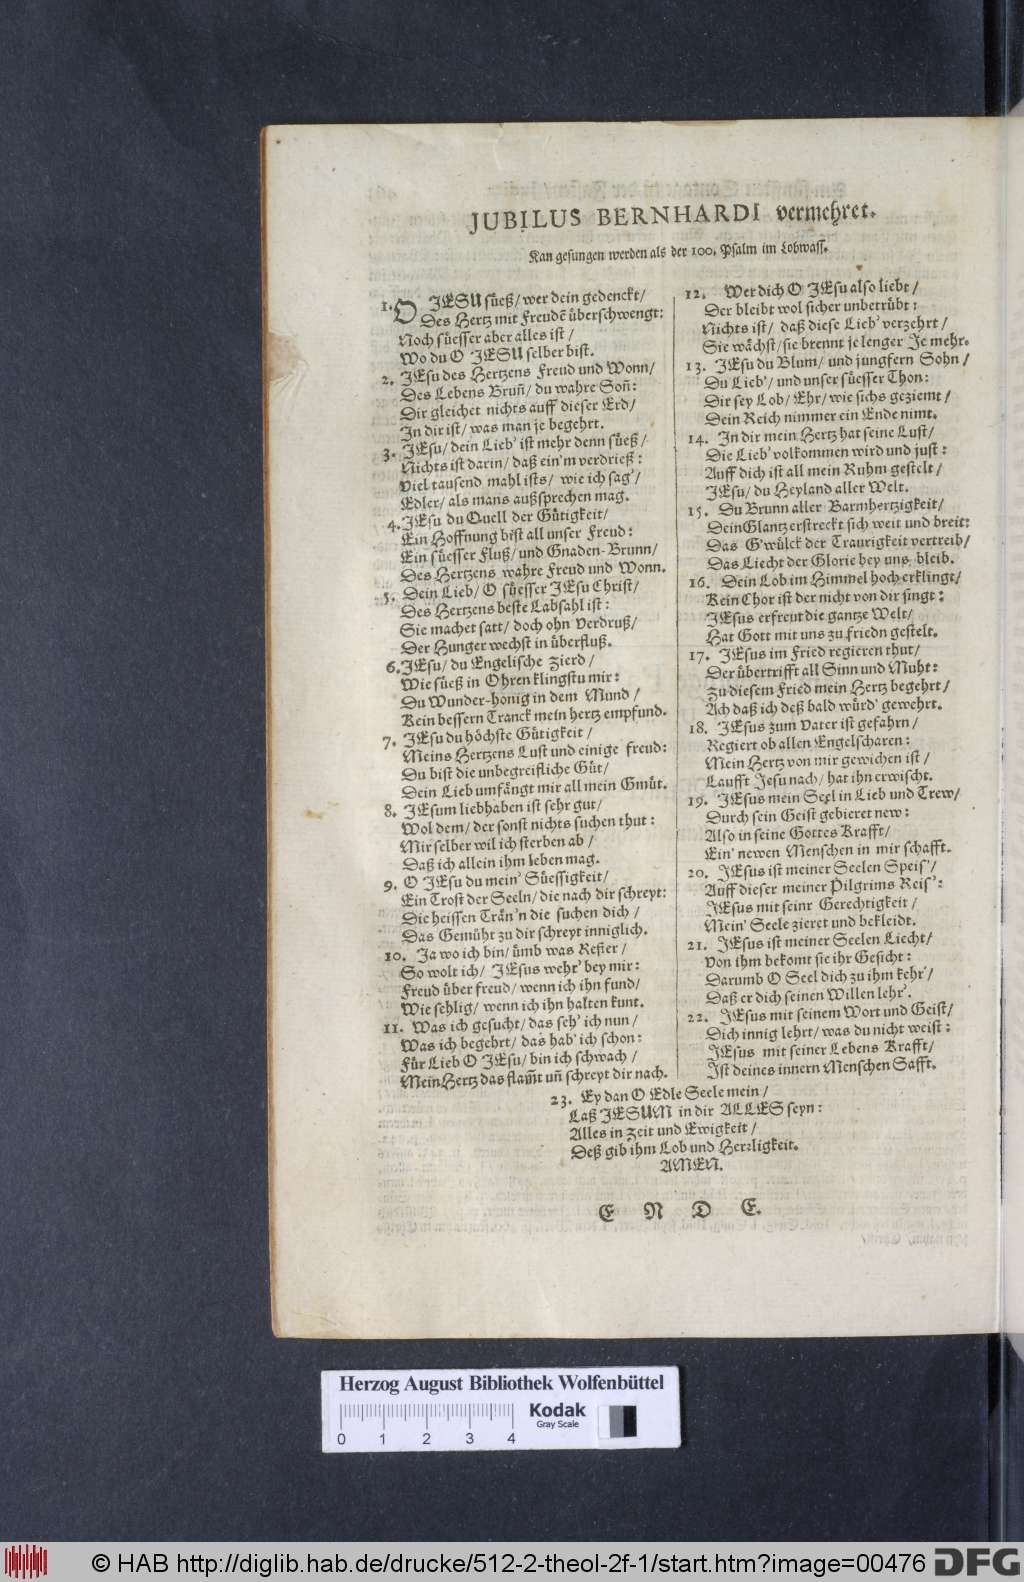 JUBILUS BERNHARDI vermehret.
Kan gesungen werden als der 100. Psalm im Lobwass.
1. O JESU süeß/ wer dein gedenckt/
Des Hertz mit Freudē überschwengt:
Noch süesser aber alles ist/
Wo du O JESU selber bist.
2. JEsu des Hertzens Freud und Wonn/
Des Lebens Bruñ/ du wahre Soñ:
Dir gleichet nichts auff dieser Erd/
In dir ist/ was man je begehrt.
3. JEsu/ dein Lieb' ist mehr denn süeß/
Nichts ist darin/ daß ein'm verdrieß:
Viel tausend mahl ists/ wie ich sag'/
Edler/ als mans außsprechen mag.
4. JEsu du Quell der Gütigkeit/
Ein Hoffnung bist all unser Freud:
Ein süesser Fluß/ und Gnaden-Brunn/
Des Hertzens wahre Freud und Wonn.
5. Dein Lieb/ O süesser JEsu Christ/
Des Hertzens beste Labsahl ist:
Sie machet satt/ doch ohn Verdruß/
Der Hunger wechst in überfluß.
6. JEsu/ du Engelische Zierd/
Wie süeß in Ohren klingstu mir:
Du Wunder-honig in dem Mund/
Kein bessern Tranck mein hertz empfund.
7. JEsu du höchste Gütigkeit/
Meins Hertzens Lust und einige freud:
Du bist die unbegreifliche Güt/
Dein Lieb umfängt mir all mein Gmüt.
8. JEsum liebhaben ist sehr gut/
Wol dem/ der sonst nichts suchen thut:
Mir selber wil ich sterben ab/
Daß ich allein ihm leben mag.
9. O JEsu du mein' Süessigkeit/
Ein Trost der Seeln/ die nach dir schreyt:
Die heissen Trän'n die suchen dich/
Das Gemüht zu dir schreyt inniglich.
10. Ja wo ich bin/ ümb was Refier/
So wolt ich/ JEsus wehr' bey mir:
Freud über freud/ wenn ich ihn fund/
Wie sehlig/ wenn ich ihn halten kunt.
11. Was ich gesucht/ das seh' ich nun/
Was ich begehrt/ das hab' ich schon:
Für Lieb O JEsu/ bin ich schwach/
Mein Hertz das flam̃t uñ schreyt dir nach.
12. Wer dich O JEsu also liebt/
Der bleibt wol sicher unbetrübt:
Nichts ist/ daß diese Lieb' verzehrt/
Sie wächst/ sie brennt je lenger Je mehr.
13. JEsu du Blum/ und jungfern Sohn/
Du Lieb'/ und unser süesser Thon:
Dir sey Lob/ Ehr/ wie sichs geziemt/
Dein Reich nimmer ein Ende nimt.
14. In dir mein Hertz hat seine Lust/
Die Lieb' volkommen wird und just:
Auff dich ist all mein Ruhm gestelt/
JEsu/ du Heyland aller Welt.
15. Du Brunn aller Barmhertzigkeit/
Dein Glantz erstreckt sich weit und breit:
Das G'wülck der Traurigkeit vertreib/
Das Liecht der Glorie bey uns bleib.
16. Dein Lob im Himmel hoch erklingt/
Kein Chor ist der nicht von dir singt:
JEsus erfreut die gantze Welt/
Hat Gott mit uns zu friedn gestelt.
17. JEsus im Fried regieren thut/
Der übertrifft all Sinn und Muht:
Zu diesem Fried mein Hertz begehrt/
Ach daß ich deß bald würd' gewehrt.
18. JEsus zum Vater ist gefahrn/
Regiert ob allen Engelscharen:
Mein Hertz von mir gewichen ist/
Laufft Jesu nach/ hat ihn erwischt.
19. JEsus mein Seel in Lieb und Trew/
Durch sein Geist gebieret new:
Also in seine Gottes Krafft/
Ein' newen Menschen in mir schafft.
20. JEsus ist meiner Seelen Speis'/
Auff dieser meiner Pilgrims Reis':
JEsus mit seinr Gerechtigkeit/
Mein' Seele zieret und bekleidt.
21. JEsus ist meiner Seelen Liecht/
Von ihm bekomt sie ihr Gesicht:
Darumb O Seel dich zu ihm kehr'/
Daß er dich seinen Willen lehr'.
22. JEsus mit seinem Wort und Geist/
Dich innig lehrt/ was du nicht weist:
JEsus mit seiner Lebens Krafft/
Ist deines innern Menschen Safft.
23. Ey dan O Edle Seele mein/
Laß JESUM in dir ALLES seyn:
Alles in Zeit und Ewigkeit/
Deß gib ihm Lob und Herrligkeit.
AMEN.
E N D E.
Herzog August Bibliothek Wolfenbüttel
Kodak
Gray Scale
0 1 2 3 4
© HAB http://diglib.hab.de/drucke/512-2-theol-2f-1/start.htm?image=00476
DFG